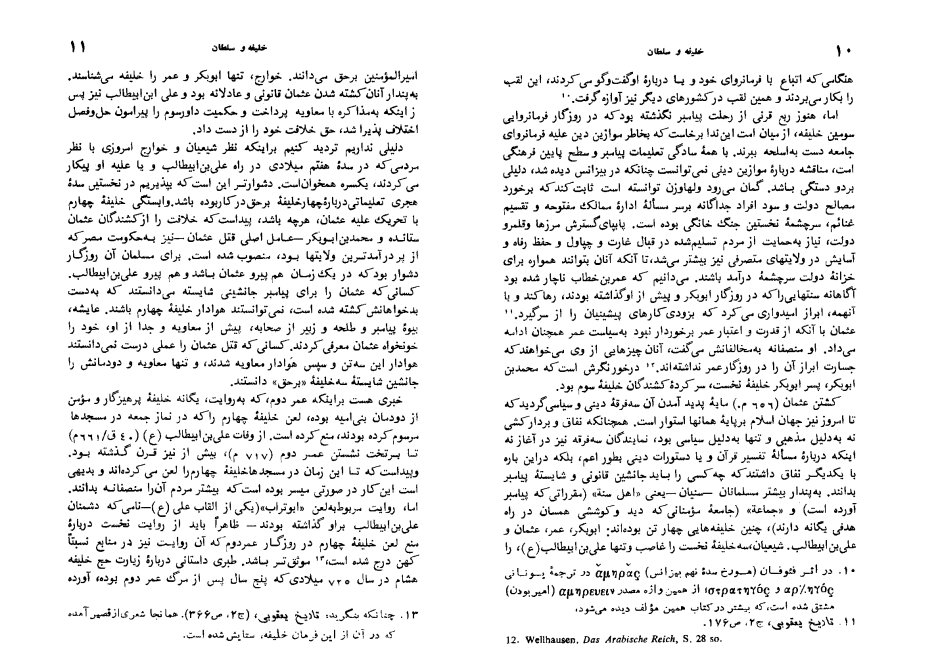 ۱۰
خلیفه و سلطان
هنگامی‌که اتباع با فرمانروای خود و یا دربارهٔ اوگفت‌وگو می‌کردند، این لقب
را بکار می‌بردند و همین لقب درکشورهای دیگر نیز آوازه گرفت.۱۰
اما، هنوز ربع قرنی از رحلت پیامبر نگذشته بودکه در روزگار فرمانروایی
سومین خلیفه، از میان امت این‌ندا برخاست‌که بخاطر موازین دین علیه فرمانروای
جامعه دست به‌اسلحه ببرند. با همهٔ سادگی تعلیمات پیامبر و سطح پایین فرهنگی
امت، مناقشه دربارهٔ موازین دینی نمی‌توانست چنانکه در بیزانس دیده شد، دلیلی
بردو دستگی باشد. گمان می‌رود ولهاوزن توانسته است ثابت‌کندکه برخورد
مصالح دولت و سود افراد جداگانه برسر مسألهٔ ادارهٔ ممالک مفتوحه و تقسیم
غنائم، سرچشمهٔ نخستین جنگ خانگی بوده است. پابپای‌گسترش مرزها وقلمرو
دولت، نیاز به‌حمایت از مردم تسلیم‌شده در قبال غارت و چپاول و حفظ رفاه و
آسایش در ولایتهای متصرفی نیز بیشتر می‌شد،تا آنکه آنان بتوانند همواره برای
خزانهٔ دولت سرچشمهٔ درآمد باشند. می‌دانیم که عمربن‌خطاب ناچار شده بود
آگاهانه سنتهایی‌راکه در روزگار ابوبکر و پیش از اوگذاشته بودند، رهاکند و با
آنهمه، ابراز امیدواری می‌کرد که بزودی‌کارهای پیشینیان را از سرگیرد.۱۱
عثمان با آنکه از قدرت و اعتبار عمر برخوردار نبود به‌سیاست عمر همچنان ادامه
می‌داد. او منصفانه به‌مخالفانش می‌گفت، آنان چیزهایی از وی می‌خواهندکه
جسارت ابراز آن را در روزگارعمر نداشته‌اند.۱۲ درخورنگرش است‌که محمدبن
ابوبکر، پسر ابوبکر خلیفهٔ نخست، سرکردهٔ‌کشندگان خلیفهٔ سوم بود.
کشتن عثمان (۶۵۶ م.) مایهٔ پدید آمدن آن سه‌فرقهٔ دینی و سیاسی‌گردیدکه
تا امروز نیز جهان اسلام برپایهٔ همانها استوار است. همچنانکه نفاق و بردارکشی
نه به‌دلیل مذهبی و تنها به‌دلیل سیاسی بود، نمایندگان سه‌فرقه نیز در آغاز نه
اینکه دربارهٔ مسألهٔ تفسیر قرآن و یا دستورات دینی بطور اعم، بلکه دراین باره
با یکدیگر نفاق داشتندکه چه‌کسی را بایدجانشین قانونی و شایستهٔ پیامبر
بدانند. به‌پندار بیشتر مسلمانان —سنیان—یعنی «اهل سنة» (مقرراتی‌که پیامبر
آورده است) و «جماعة» (جامعهٔ مؤمنانی‌که دید وکوششی همسان در راه
هدفی یگانه دارند)، چنین خلیفه‌هایی چهار تن بوده‌اند: ابوبکر، عمر، عثمان و
علی‌بن‌ابیطالب. شیعیان،سه‌خلیفهٔ نخست را غاصب وتنها علی‌بن‌ابیطالب(ع)، را
۱۰. در اثر فئوفان (مورخ سدهٔ نهم بیزانس) ἀμηρᾶς در ترجمهٔ یونانی
ἀρχηγός و στρατηγός؛ از همین واژه مصدر ἀμηρεύειν (امیربودن)
مشتق شده است،که بیشتر درکتاب همین مؤلف دیده می‌شود.
۱۱. تاریخ یعقوبی، ج۲، ص۱۷۶.
12. Wellhausen, Das Arabische Reich, S. 28 so.
۱۱
خلیفه و سلطان
امیرالمؤمنین برحق می‌دانند. خوارج، تنها ابوبکر و عمر را خلیفه می‌شناسند.
به‌پندارآنان‌کشته شدن عثمان قانونی و عادلانه بود و علی ابن‌ابیطالب نیز پس
ز اینکه به‌مذاکره با معاویه پرداخت و حکمیت داورسوم را پیرامون حل‌وفصل
اختلاف پذیرا شد، حق خلافت خود را از دست داد.
دلیلی نداریم تردید کنیم براینکه نظر شیعیان و خوارج امروزی با نظر
مردمی‌که در سدهٔ هفتم میلادی در راه علی‌بن‌ابیطالب و یا علیه او پیکار
می‌کردند، یکسره همخوان‌است. دشوارتر این است‌که بپذیریم در نخستین سدهٔ
هجری تعلیماتی‌دربارهٔ‌چهارخلیفهٔ برحق‌درکاربوده باشد.وابستگی خلیفهٔ چهارم
با تحریک علیه عثمان، هرچه باشد، پیداست‌که خلافت را ازکشندگان عثمان
ستانده و محمدبن‌ابوبکر—عامل اصلی قتل عثمان—نیز به‌حکومت مصرکه
از پردرآمدترین ولایتها بود، منصوب شده است. برای مسلمان آن روزگار
دشوار بودکه در یک‌زمان هم پیرو عثمان باشد و هم پیرو علی‌بن‌ابیطالب.
کسانی‌که عثمان را برای پیامبر جانشینی شایسته می‌دانستند که به‌دست
بدخواهانش کشته شده است، نمی‌توانستند هوادار خلیفهٔ چهارم باشند. عایشه،
بیوهٔ پیامبر و طلحه و زبیر از صحابه، پیش از معاویه و جدا از او، خود را
خونخواه عثمان معرفی‌کردند.کسانی‌که قتل عثمان را عملی درست نمی‌دانستند
هوادار این سه‌تن و سپس هوادار معاویه شدند، و تنها معاویه و دودمانش را
جانشین شایستهٔ سه‌خلیفهٔ «برحق» دانستند.
خبری هست براینکه عمر دوم، که‌به‌روایت، یگانه خلیفهٔ پرهیزگار و مؤمن
از دودمان بنی‌امیه بوده، لعن خلیفهٔ چهارم راکه در نماز جمعه در مسجدها
مرسوم کرده بودند، منع کرده است. از وفات علی‌بن‌ابیطالب (ع) (۴۰ ق/۶۶۱م)
تا برتخت نشستن عمر دوم (۷۱۷ م)، بیش از نیم قرن گذشته بود.
وپیداست‌که تا این زمان در مسجدهاخلیفهٔ چهارم‌را لعن می‌کرده‌اند و بدیهی
است این‌کار در صورتی میسر بوده است‌که بیشتر مردم آن‌را منصفانه بدانند.
اما، روایت مربوطبه‌لعن «ابوتراب»(یکی از القاب علی (ع)—نامی‌که دشمنان
علی‌بن‌ابیطالب براو گذاشته بودند— ظاهراً باید از روایت نخست دربارهٔ
منع لعن خلیفهٔ چهارم در روزگار عمردوم‌که آن روایت نیز در منابع نسبتاً
کهن درج شده است،۱۳ موثق‌تر باشد. طبری داستانی دربارهٔ زیارت حج خلیفه
هشام در سال ۷۲۵ میلادی‌که پنج سال پس از مرگ عمر دوم بوده، آورده
۱۳. چنانکه بنگرید: تاریخ یعقوبی، (ج۲، ص۳۶۶). همانجا شعری‌ازقصیر آمده
که در آن از این فرمان خلیفه، ستایش شده است.